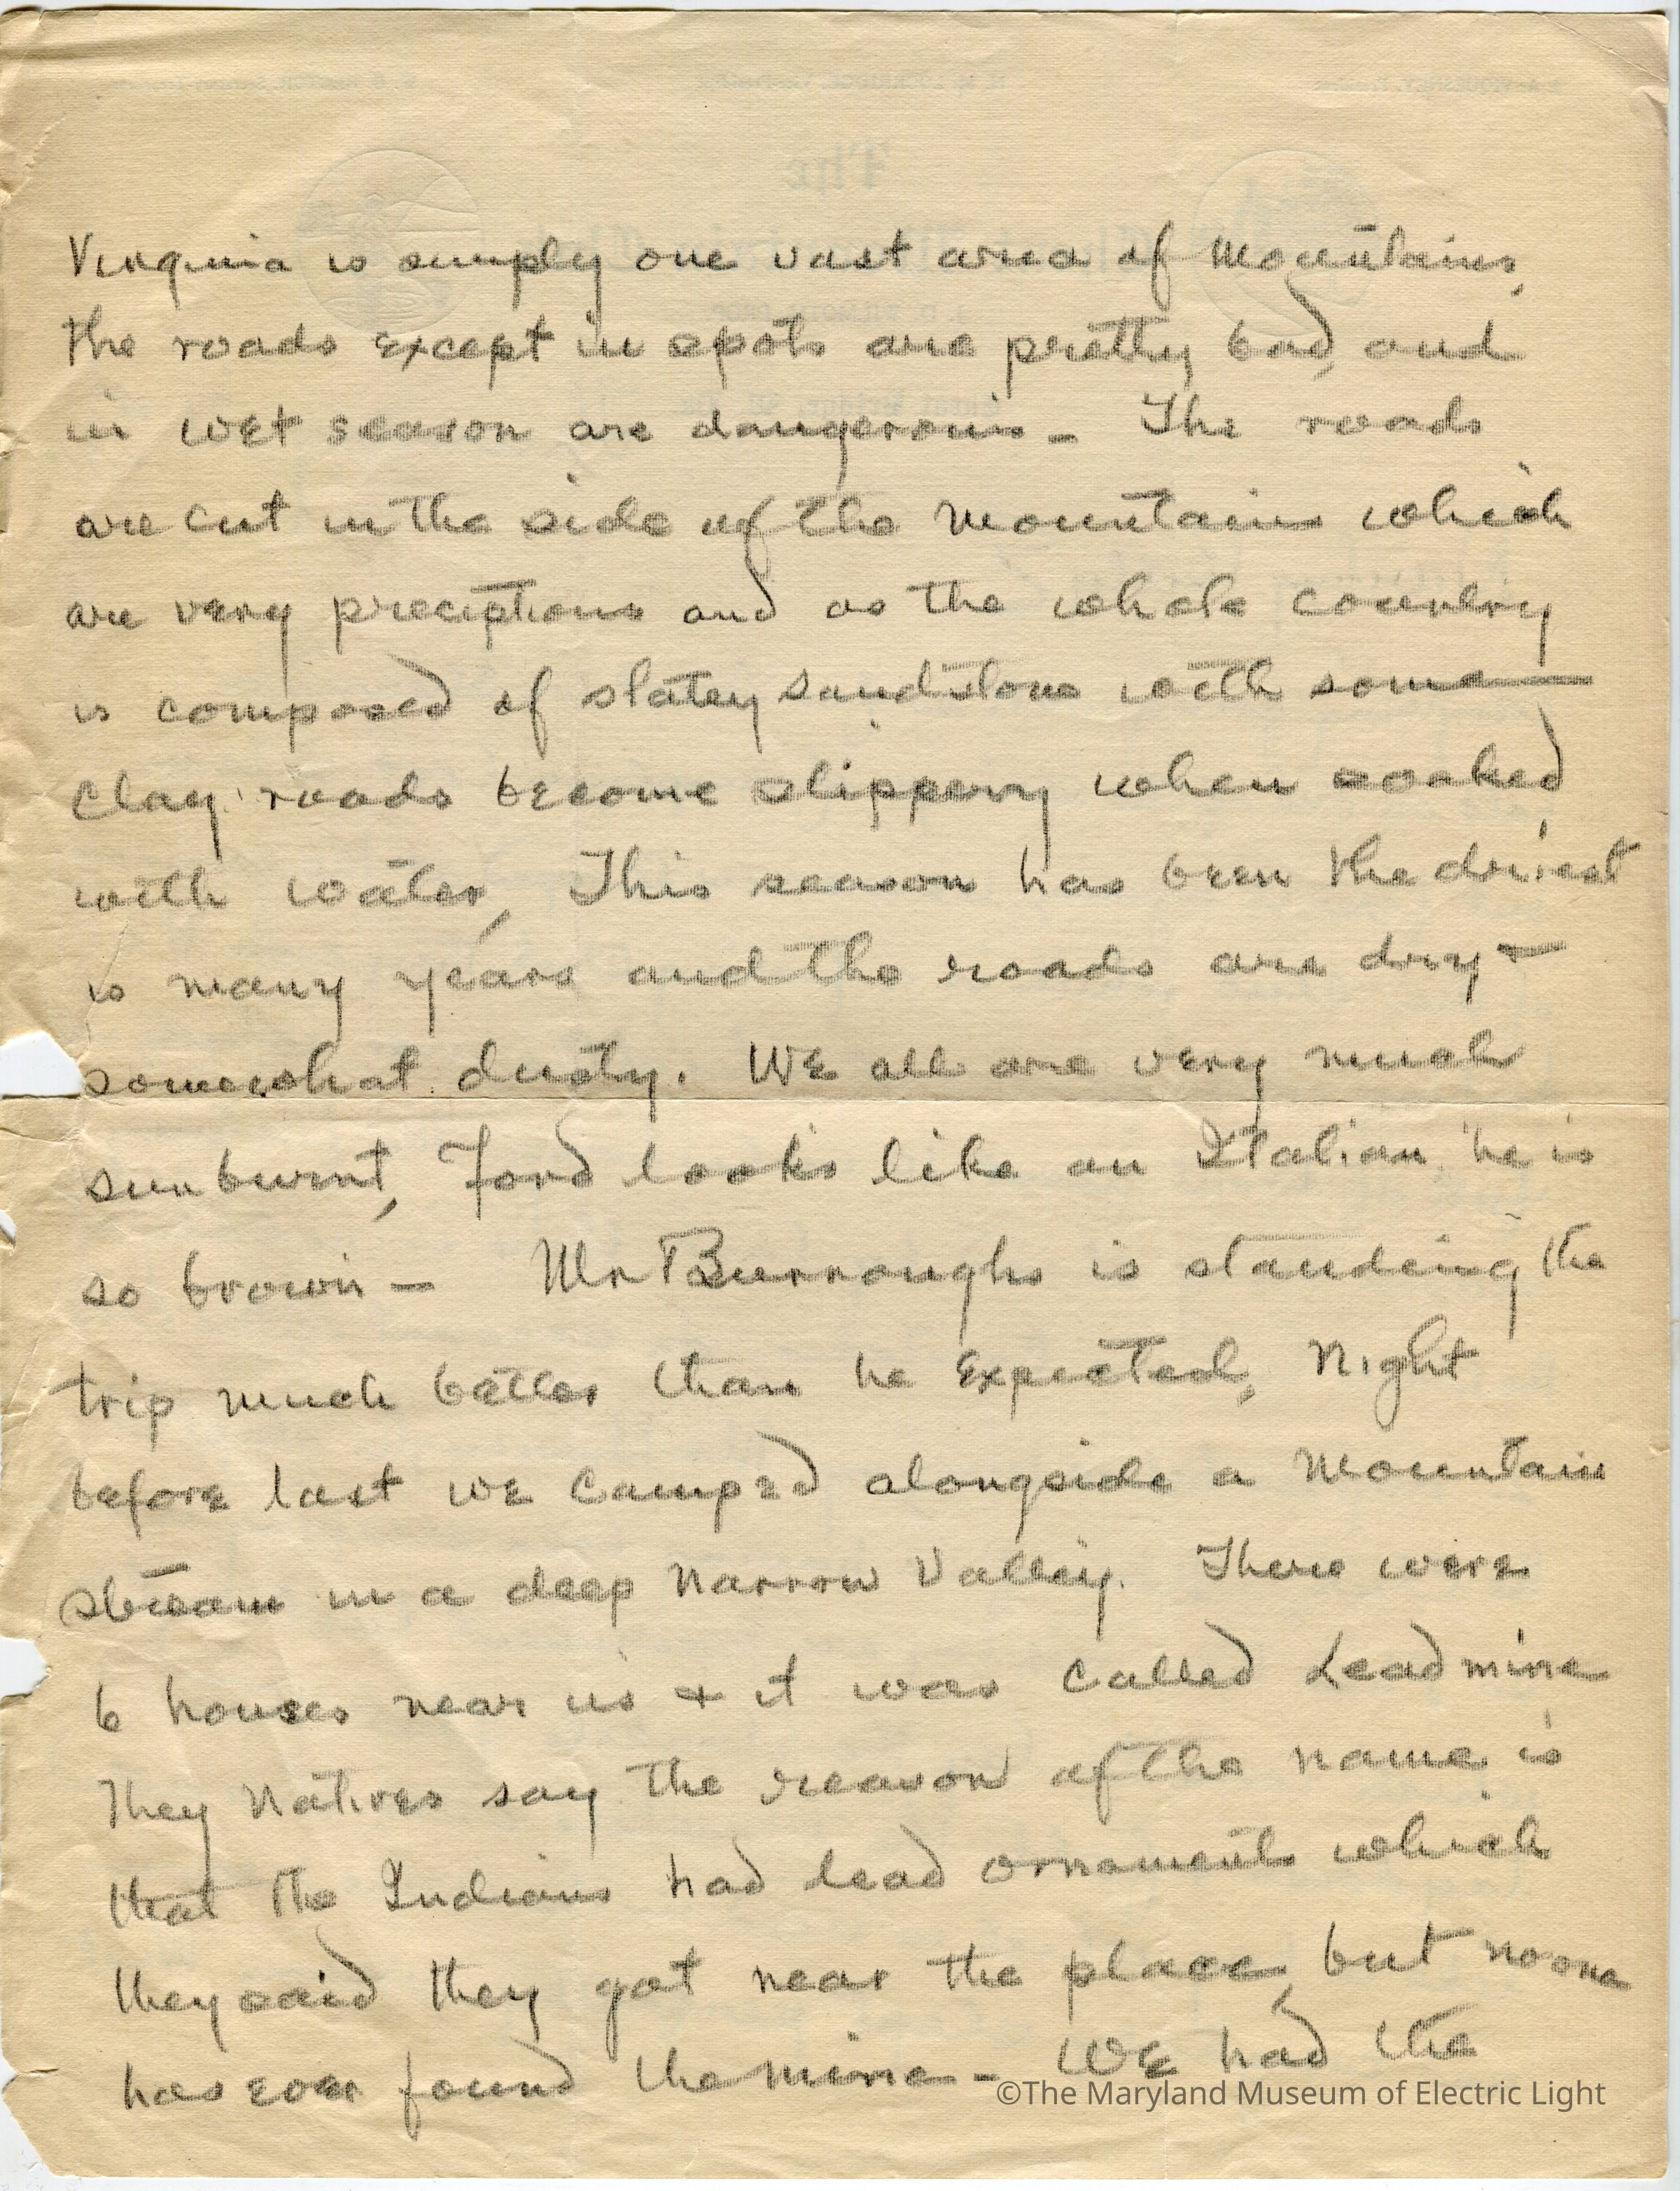 Virginia is simply one vast area of Mountains,
the roads except in spots are pretty bad, and
in wet season are dangerous - The roads
are cut in the side of the Mountains which
are very preciptious and as the whole country
is composed of slatey sandstone with some
Clay roads become slippery when soaked
with water, This season has been the driest
is many years and the roads are dry &
somewhat dusty. We all are very much
sunburnt, Ford looks like an Italian he is
so brown - Mr Burroughs is standing the
trip much better than he Expected, Night
before last we Camped alongside a Mountain
stream in a deep Narrow Valley. There were
6 houses near us & it was Called Leadmine
They Natives say the reason of the name is
that the Indians had lead ornaments which
they said they got near the place, but no one
has ever found the mine - We had the
©The Maryland Museum of Electric Light